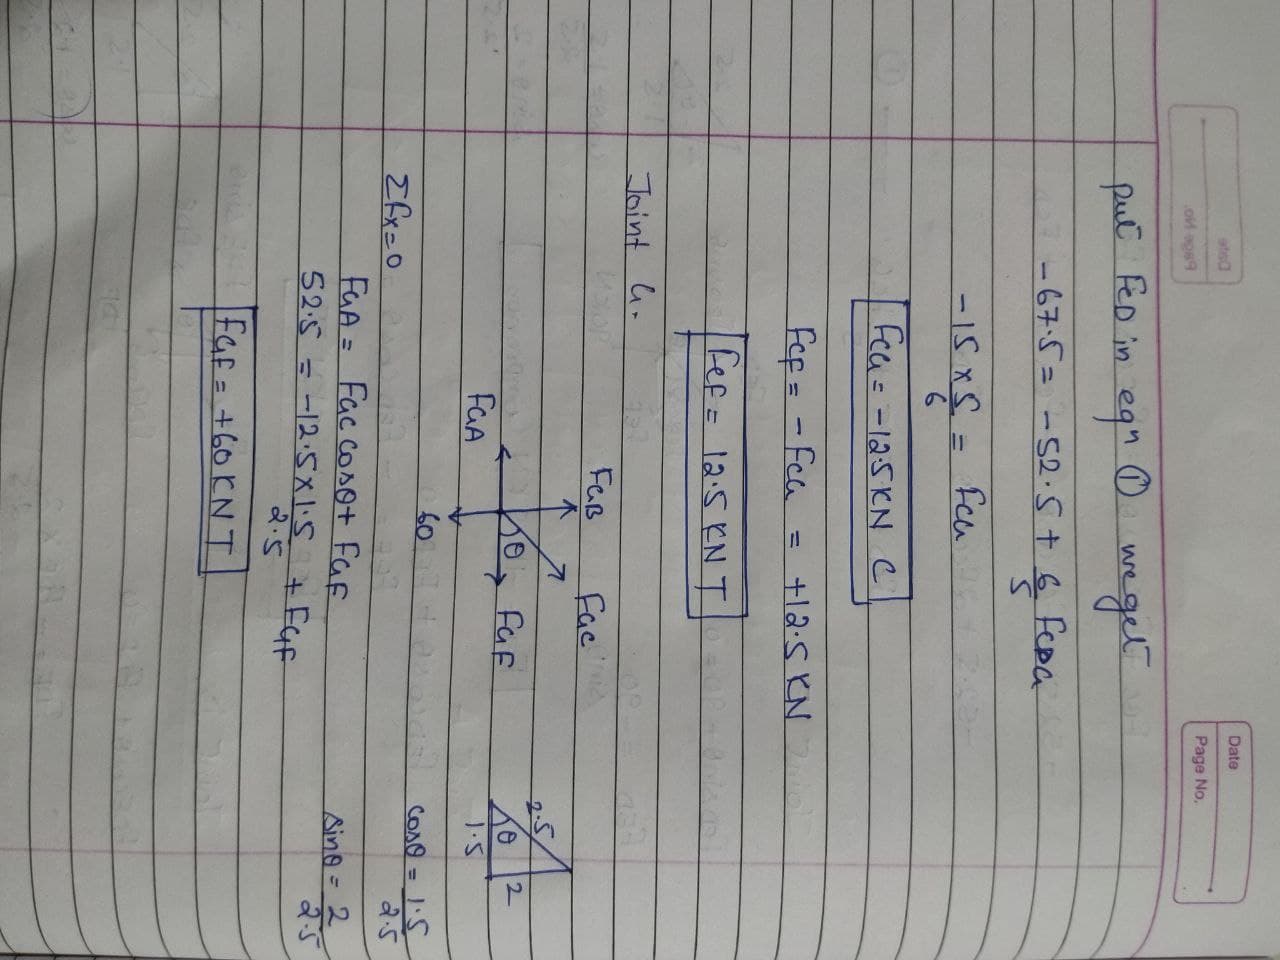 Date
Page No.
put FCD in eqn ① we get
-67.5 = -52.5 + 6/5 FCG
-15 × 5/6 = FCG
FCG = -12.5 KN C
FCF = -FCG = +12.5 KN
FCF = 12.5 KN T
Joint G.
FGB
FGC
FGA
θ
FGF
60
2.5
θ
2
1.5
cosθ = 1.5/2.5
sinθ = 2/2.5
ΣFx = 0
FGA = FGC cosθ + FGF
52.5 = -12.5 × 1.5/2.5 + FGF
FGF = +60 KN T